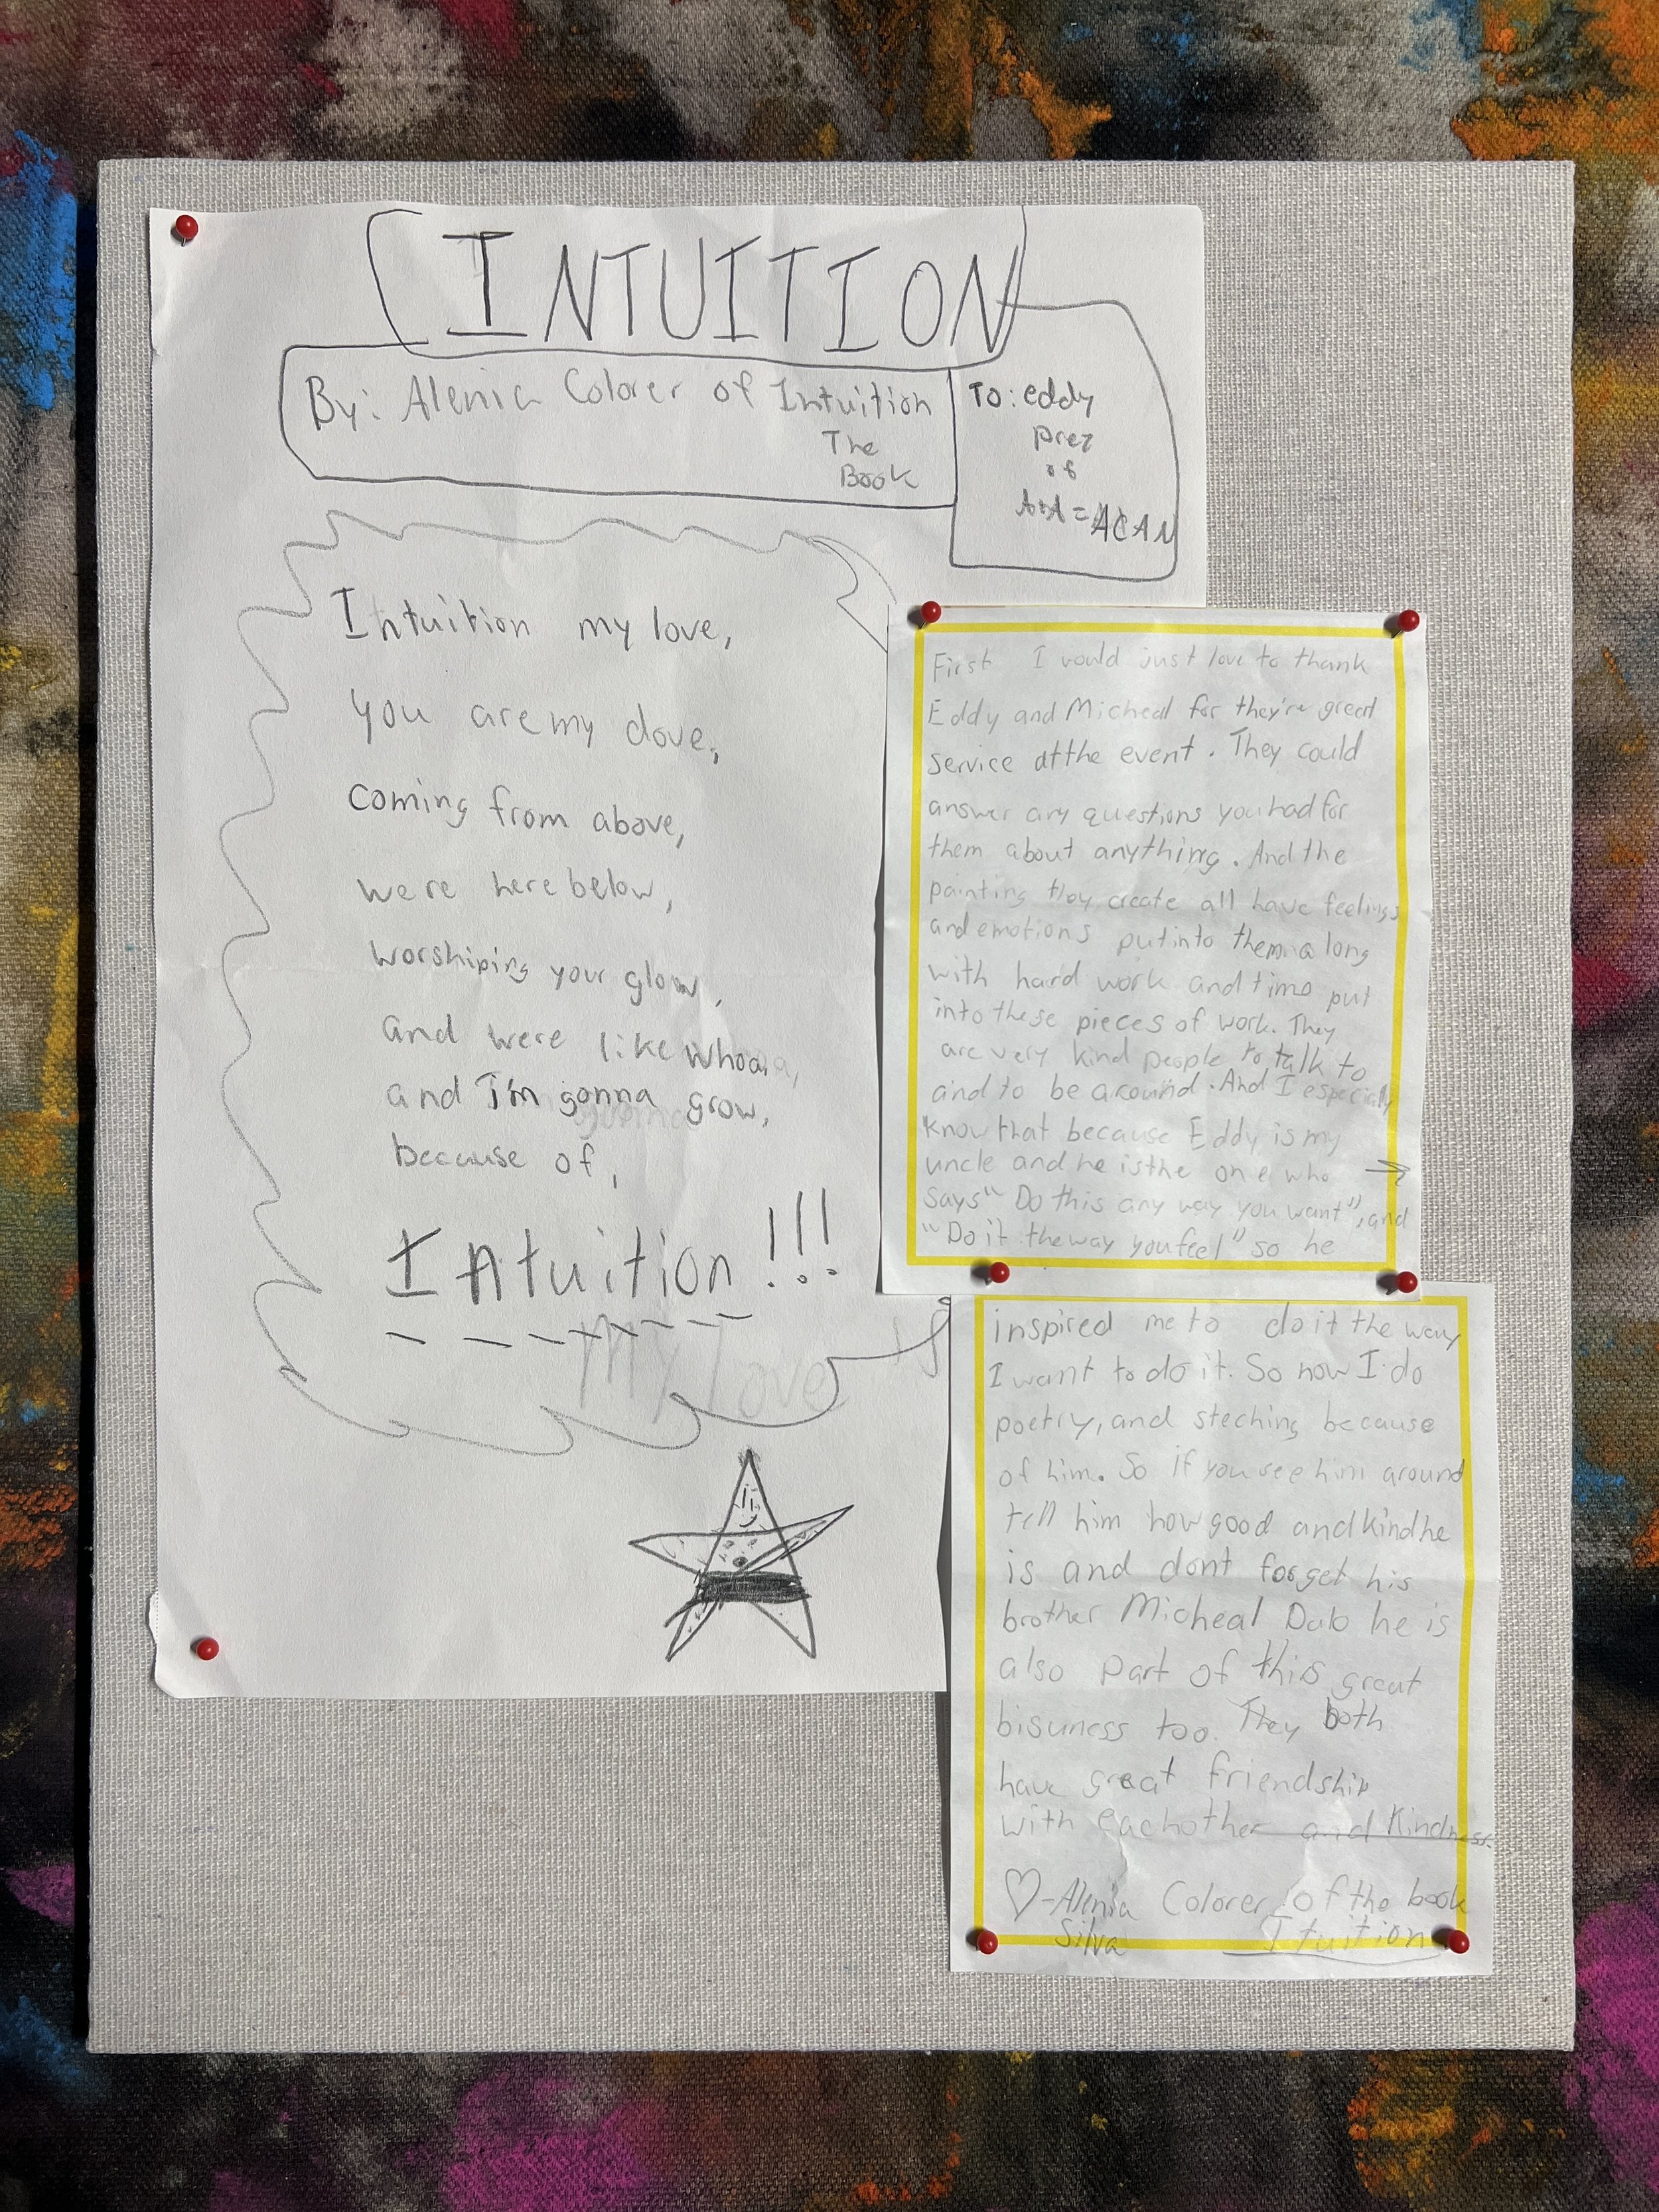 INTUITION
By: Alenia Colorer of Intuition
The
Book
To: eddy
prez
of
A+A = ACAN
Intuition my love,
you are my dove,
coming from above,
were here below,
worshiping your glow,
and were like whoaa,
and I'm gonna grow,
because of,
Intuition!!!
My love
First I would just love to thank
Eddy and Micheal for they're great
service at the event. They could
answer any questions you had for
them about anything. And the
painting they create all have feelings
and emotions put into them a long
with hard work and time put
into these pieces of work. They
are very kind people to talk to
and to be around. And I especially
know that because Eddy is my
uncle and he is the one who
says "Do this any way you want", and
"Do it the way you feel" so he
inspired me to do it the way
I want to do it. So now I do
poetry, and steching because
of him. So if you see him around
tell him how good and kind he
is and dont forget his
brother Micheal Dalo he is
also part of this great
bisuness too. They both
have great friendship
with eachother and Kindness.
♡-Alenia Colorer of the book
Silva Ituition